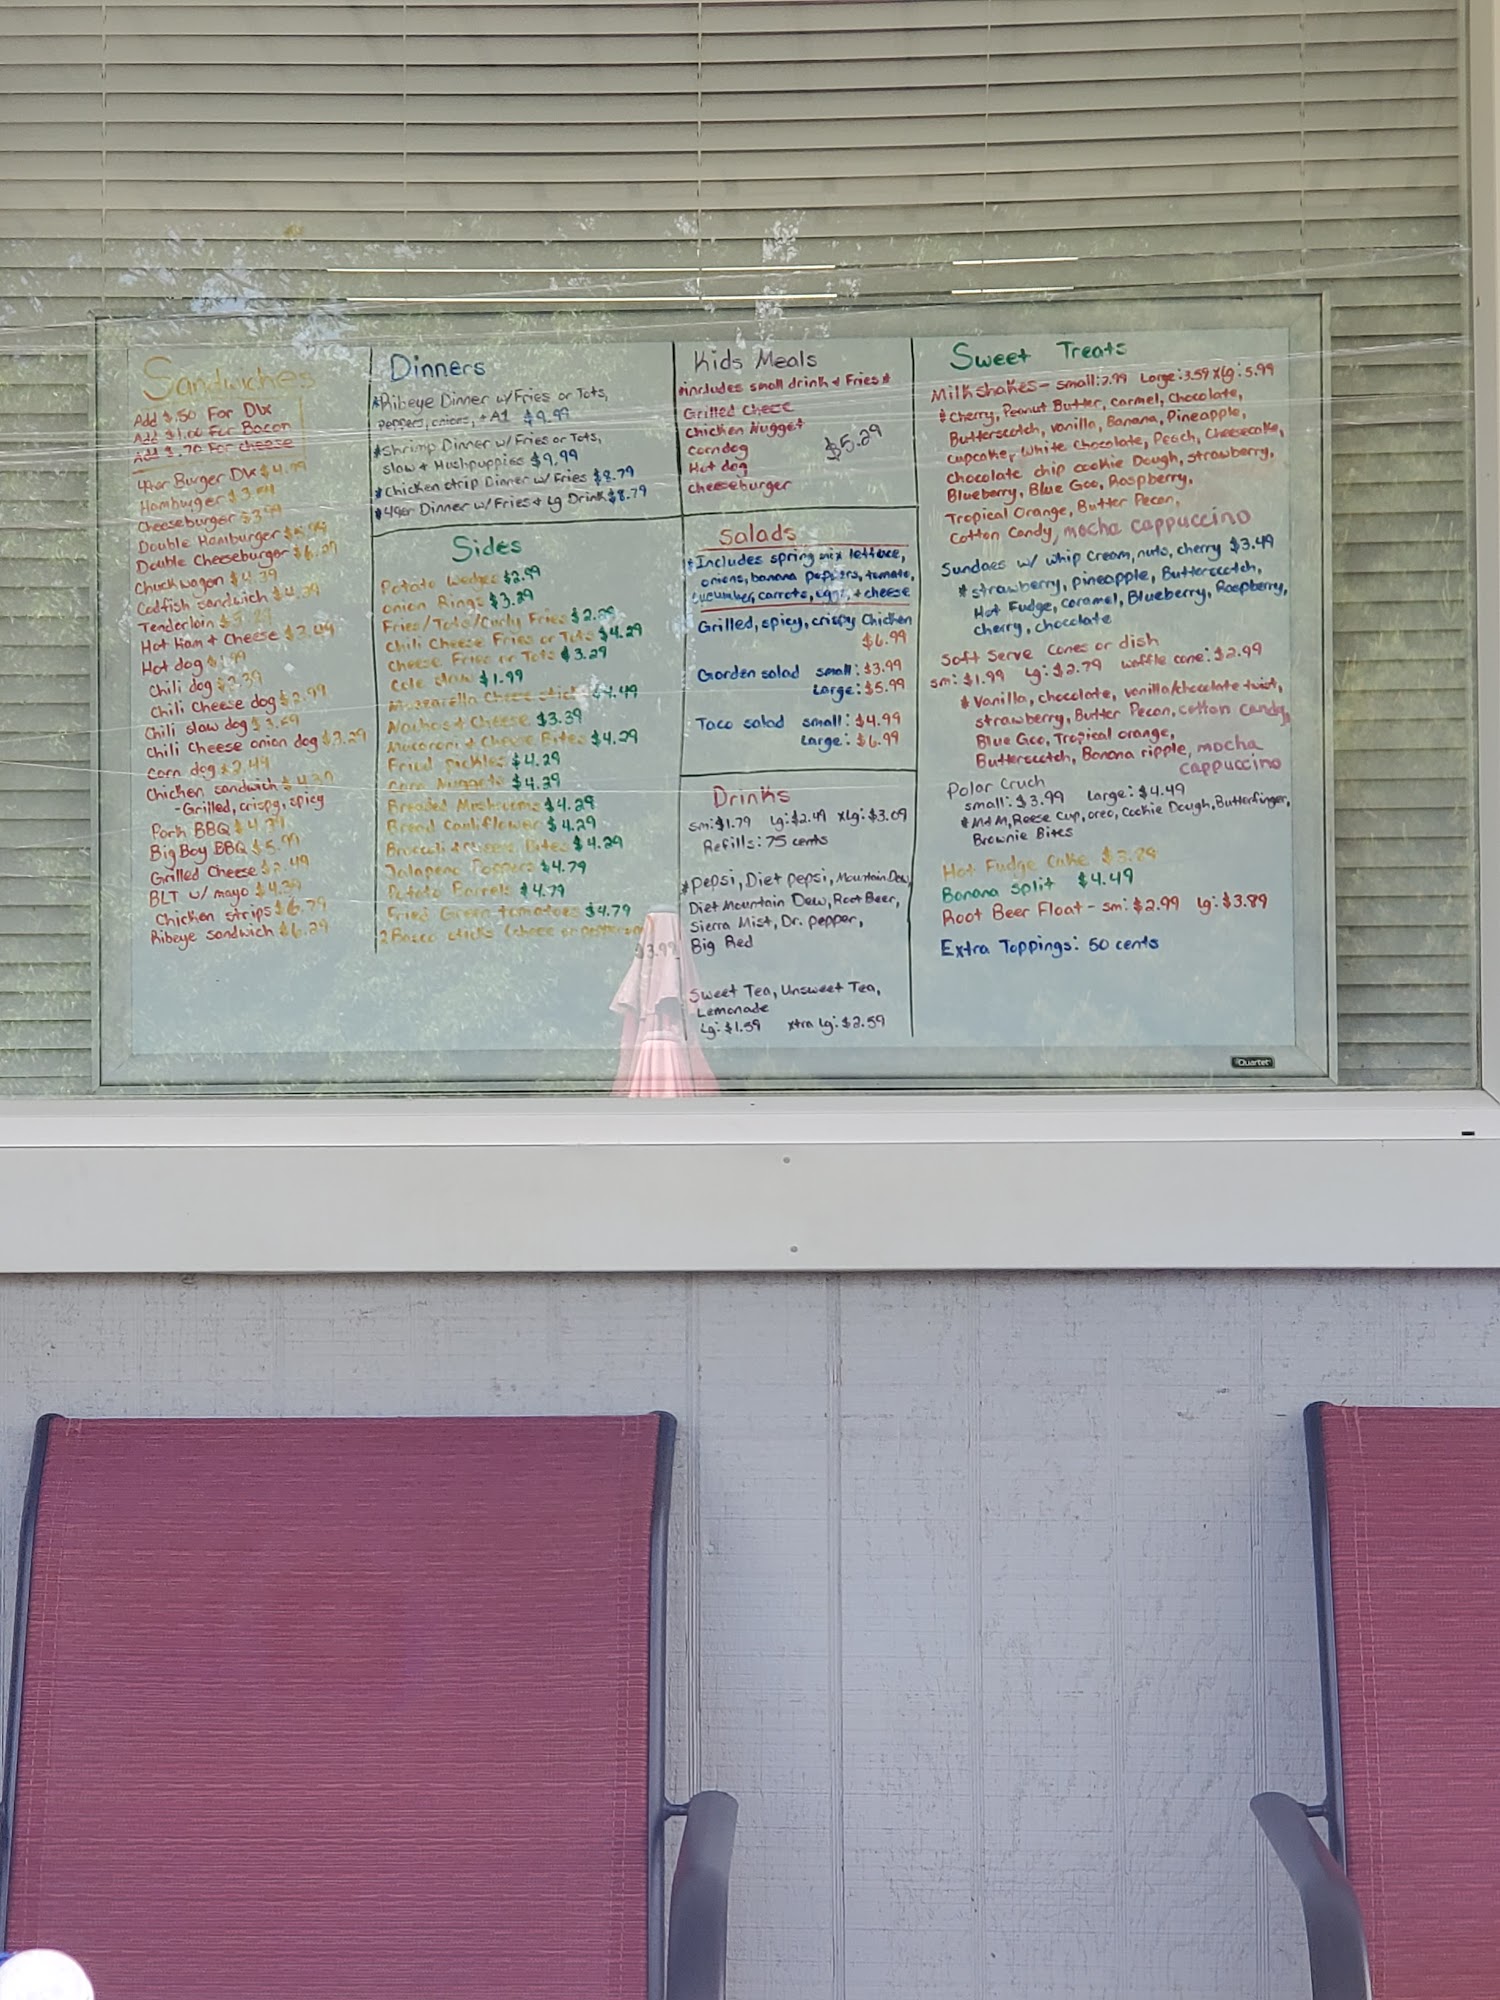 Sandwiches
Add $.50 For Dlx
Add $1.00 For Bacon
Add $.70 For cheese
49er Burger Dlx $4.79
Hamburger
Cheeseburger $3.99
Double Hamburger
Double Cheeseburger $6.29
Chuckwagon $4.39
Codfish sandwich
Tenderloin
Hot Ham + Cheese
Hot dog
Chili dog
Chili Cheese dog $2.99
Chili slaw dog
Chili Cheese onion dog $3.29
Corn dog $2.49
Chicken sandwich
-Grilled, crispy, spicy
Pork BBQ $4.39
Big Boy BBQ $5.99
Grilled Cheese $2.49
BLT w/ mayo $4.39
Chicken strips $6.79
Ribeye sandwich $6.29
Dinners
*Ribeye Dinner w/Fries or Tots,
peppers, onions, + A1 $9.99
*shrimp Dinner w/ Fries or Tots,
slaw + Hushpuppies $9.99
*Chicken strip Dinner w/ Fries $8.79
*49er Dinner w/ Fries + Lg Drink $8.79
Sides
Potato Wedges $2.99
onion Rings $3.29
Fries/Tots/Curly Fries $2.29
Chili Cheese Fries or Tots $4.29
Cheese Fries or Tots $3.29
Cole slaw $1.99
Mozzarella Cheese sticks $4.49
Nachos + Cheese $3.39
Macaroni + Cheese Bites $4.29
Fried pickles $4.29
Corn Nuggets $4.29
Breaded Mushrooms $4.29
Bread Cauliflower $4.29
Broccoli + Cheese Bites $4.29
Jalapeno Poppers $4.79
Potato Barrels $4.79
Fried Green tomatoes $4.79
2 Bosco sticks (cheese or pepperoni)
$3.99
Kids Meals
*includes small drink + Fries*
Grilled Cheese
Chicken Nugget
corndog
Hot dog
cheeseburger
$5.29
Salads
*Includes spring mix lettuce,
onions, banana peppers, tomato,
cucumber, carrots, eggs, + cheese
Grilled, spicy, crispy Chicken
$6.99
Garden salad small: $3.99
Large: $5.99
Taco salad small: $4.99
Large: $6.99
Drinks
sm: $1.79 Lg: $2.49 xLg: $3.09
Refills: 75 cents
*Pepsi, Diet pepsi, Mountain Dew,
Diet Mountain Dew, Root Beer,
Sierra Mist, Dr. pepper,
Big Red
Sweet Tea, Unsweet Tea,
Lemonade
Lg: $1.59 xtra lg: $2.59
Sweet Treats
Milkshakes- small: 2.99 Large: 3.59 xlg: 5.99
*Cherry, Peanut Butter, Carmel, Chocolate,
Butterscotch, vanilla, Banana, Pineapple,
Cupcake, White Chocolate, Peach, Cheesecake,
Chocolate chip cookie Dough, strawberry,
Blueberry, Blue Goo, Raspberry,
Tropical Orange, Butter Pecan,
Cotton Candy, mocha cappuccino
Sundaes w/ whip Cream, nuts, cherry $3.49
*strawberry, pineapple, Butterscotch,
Hot Fudge, caramel, Blueberry, Raspberry,
cherry, chocolate
Soft Serve Cones or dish
sm: $1.99 Lg: $2.79 waffle cone: $2.99
*Vanilla, chocolate, vanilla/chocolate twist,
strawberry, Butter Pecan, cotton candy,
Blue Goo, Tropical orange,
Butterscotch, Banana ripple, mocha
cappuccino
Polar Cruch
small: $3.99 Large: $4.49
*M+M, Reese Cup, oreo, Cookie Dough, Butterfinger,
Brownie Bites
Hot Fudge Cake $3.89
Banana split $4.49
Root Beer Float - sm: $2.99 lg: $3.89
Extra Toppings: 50 cents
Quartet